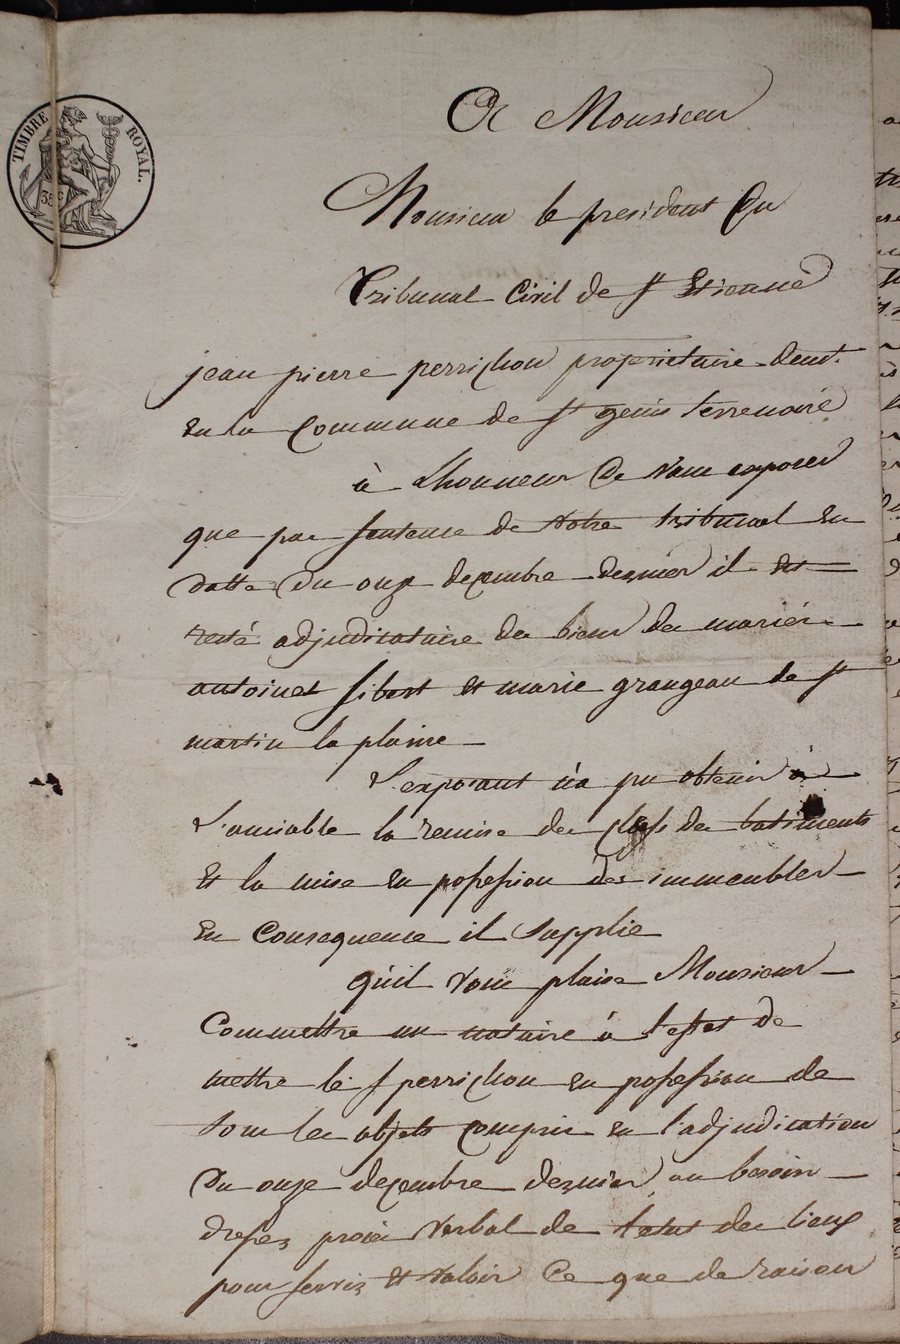 TIMBRE ROYAL.
35 C
A Monsieur
Monsieur le president Du
Tribunal Civil de St Etienne
jean pierre perrichon proprietaire demt
en la Commune de St genis terrenoire
à Lhonneur De Vous exposer
que par sentence de Votre tribunal en
datte Du onze decembre dernier il est
resté adjudicataire des biens des mariés
antoine sibert et marie grangeau de St
martin la plaine
L'exposant n'a pu obtenir à
L'amiable la remise des clefs des batiments
Et la mise en possession des immeubles
En Consequence il supplie
qu'il Vous plaise Monsieur
Commettre un notaire à l'effet de
mettre le S perrichon en possession de
tous les objets compris en l'adjudication
Du onze decembre dernier au besoin
dresser procès Verbal de letat des lieux
pour servir Et Valoir Ce que de raison